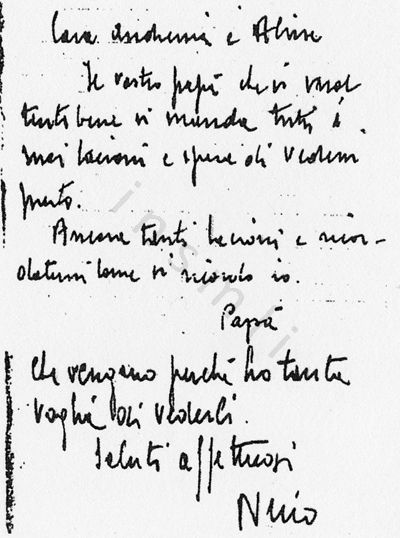 Cara Andreina e Alvise
Il vostro papà che vi vuol
tanto bene vi manda tutti i
suoi bacioni e spera di vedervi
presto.
Ancora tanti bacioni e ricor-
datemi come vi ricordo io.
Papà
che vengano perché ho tanta
voglia di vederli.
Saluti affettuosi
Nino
insmli